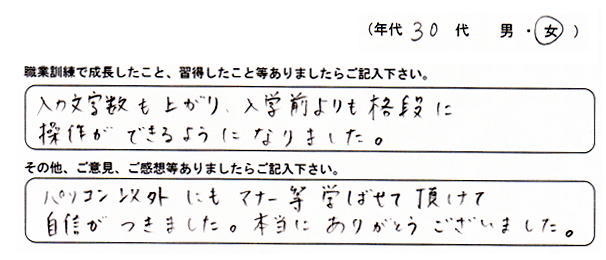 (年代 30 代 男 ・ 女 )
職業訓練で成長したこと、習得したこと等ありましたらご記入下さい。
入力文字数も上がり、入学前よりも格段に
操作ができるようになりました。
その他、ご意見、ご感想等ありましたらご記入下さい。
パソコン以外にもマナー等学ばせて頂けて
自信がつきました。本当にありがとうございました。